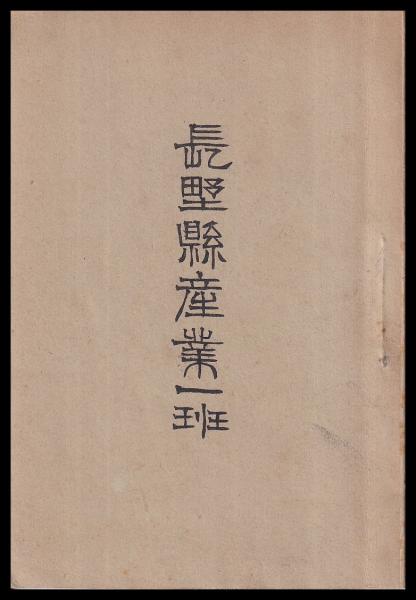 長野縣產業一班